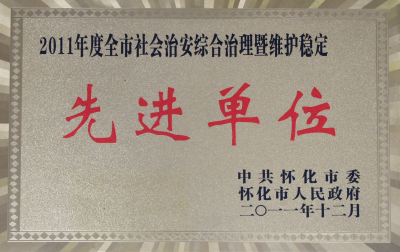 2011年度全市社会治安综合治理暨维护稳定
先进单位
中共怀化市委
怀化市人民政府
二〇一一年十二月